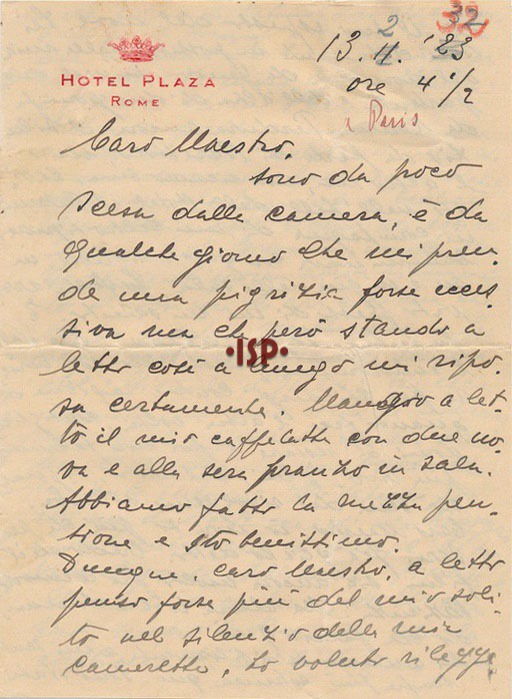 2 32
HOTEL PLAZA
ROME
13.11.'23
ore 4 1/2
a Paris
Caro Maestro,
sono da poco
scesa dalla camera, è da
qualche giorno che mi pren-
de una pigrizia forse ecces-
siva ma che però stando a
letto così a lungo mi ripo-
sa certamente. Mangio a let-
to il mio caffelatte con due uo-
va e alla sera pranzo in sala.
Abbiamo fatto la mezza pen-
sione e sto benissimo.
Dunque, caro Maestro, a letto
penso forse più del mio soli-
to nel silenzio della mia
cameretta. Ho voluto rilegge-
·ISP·